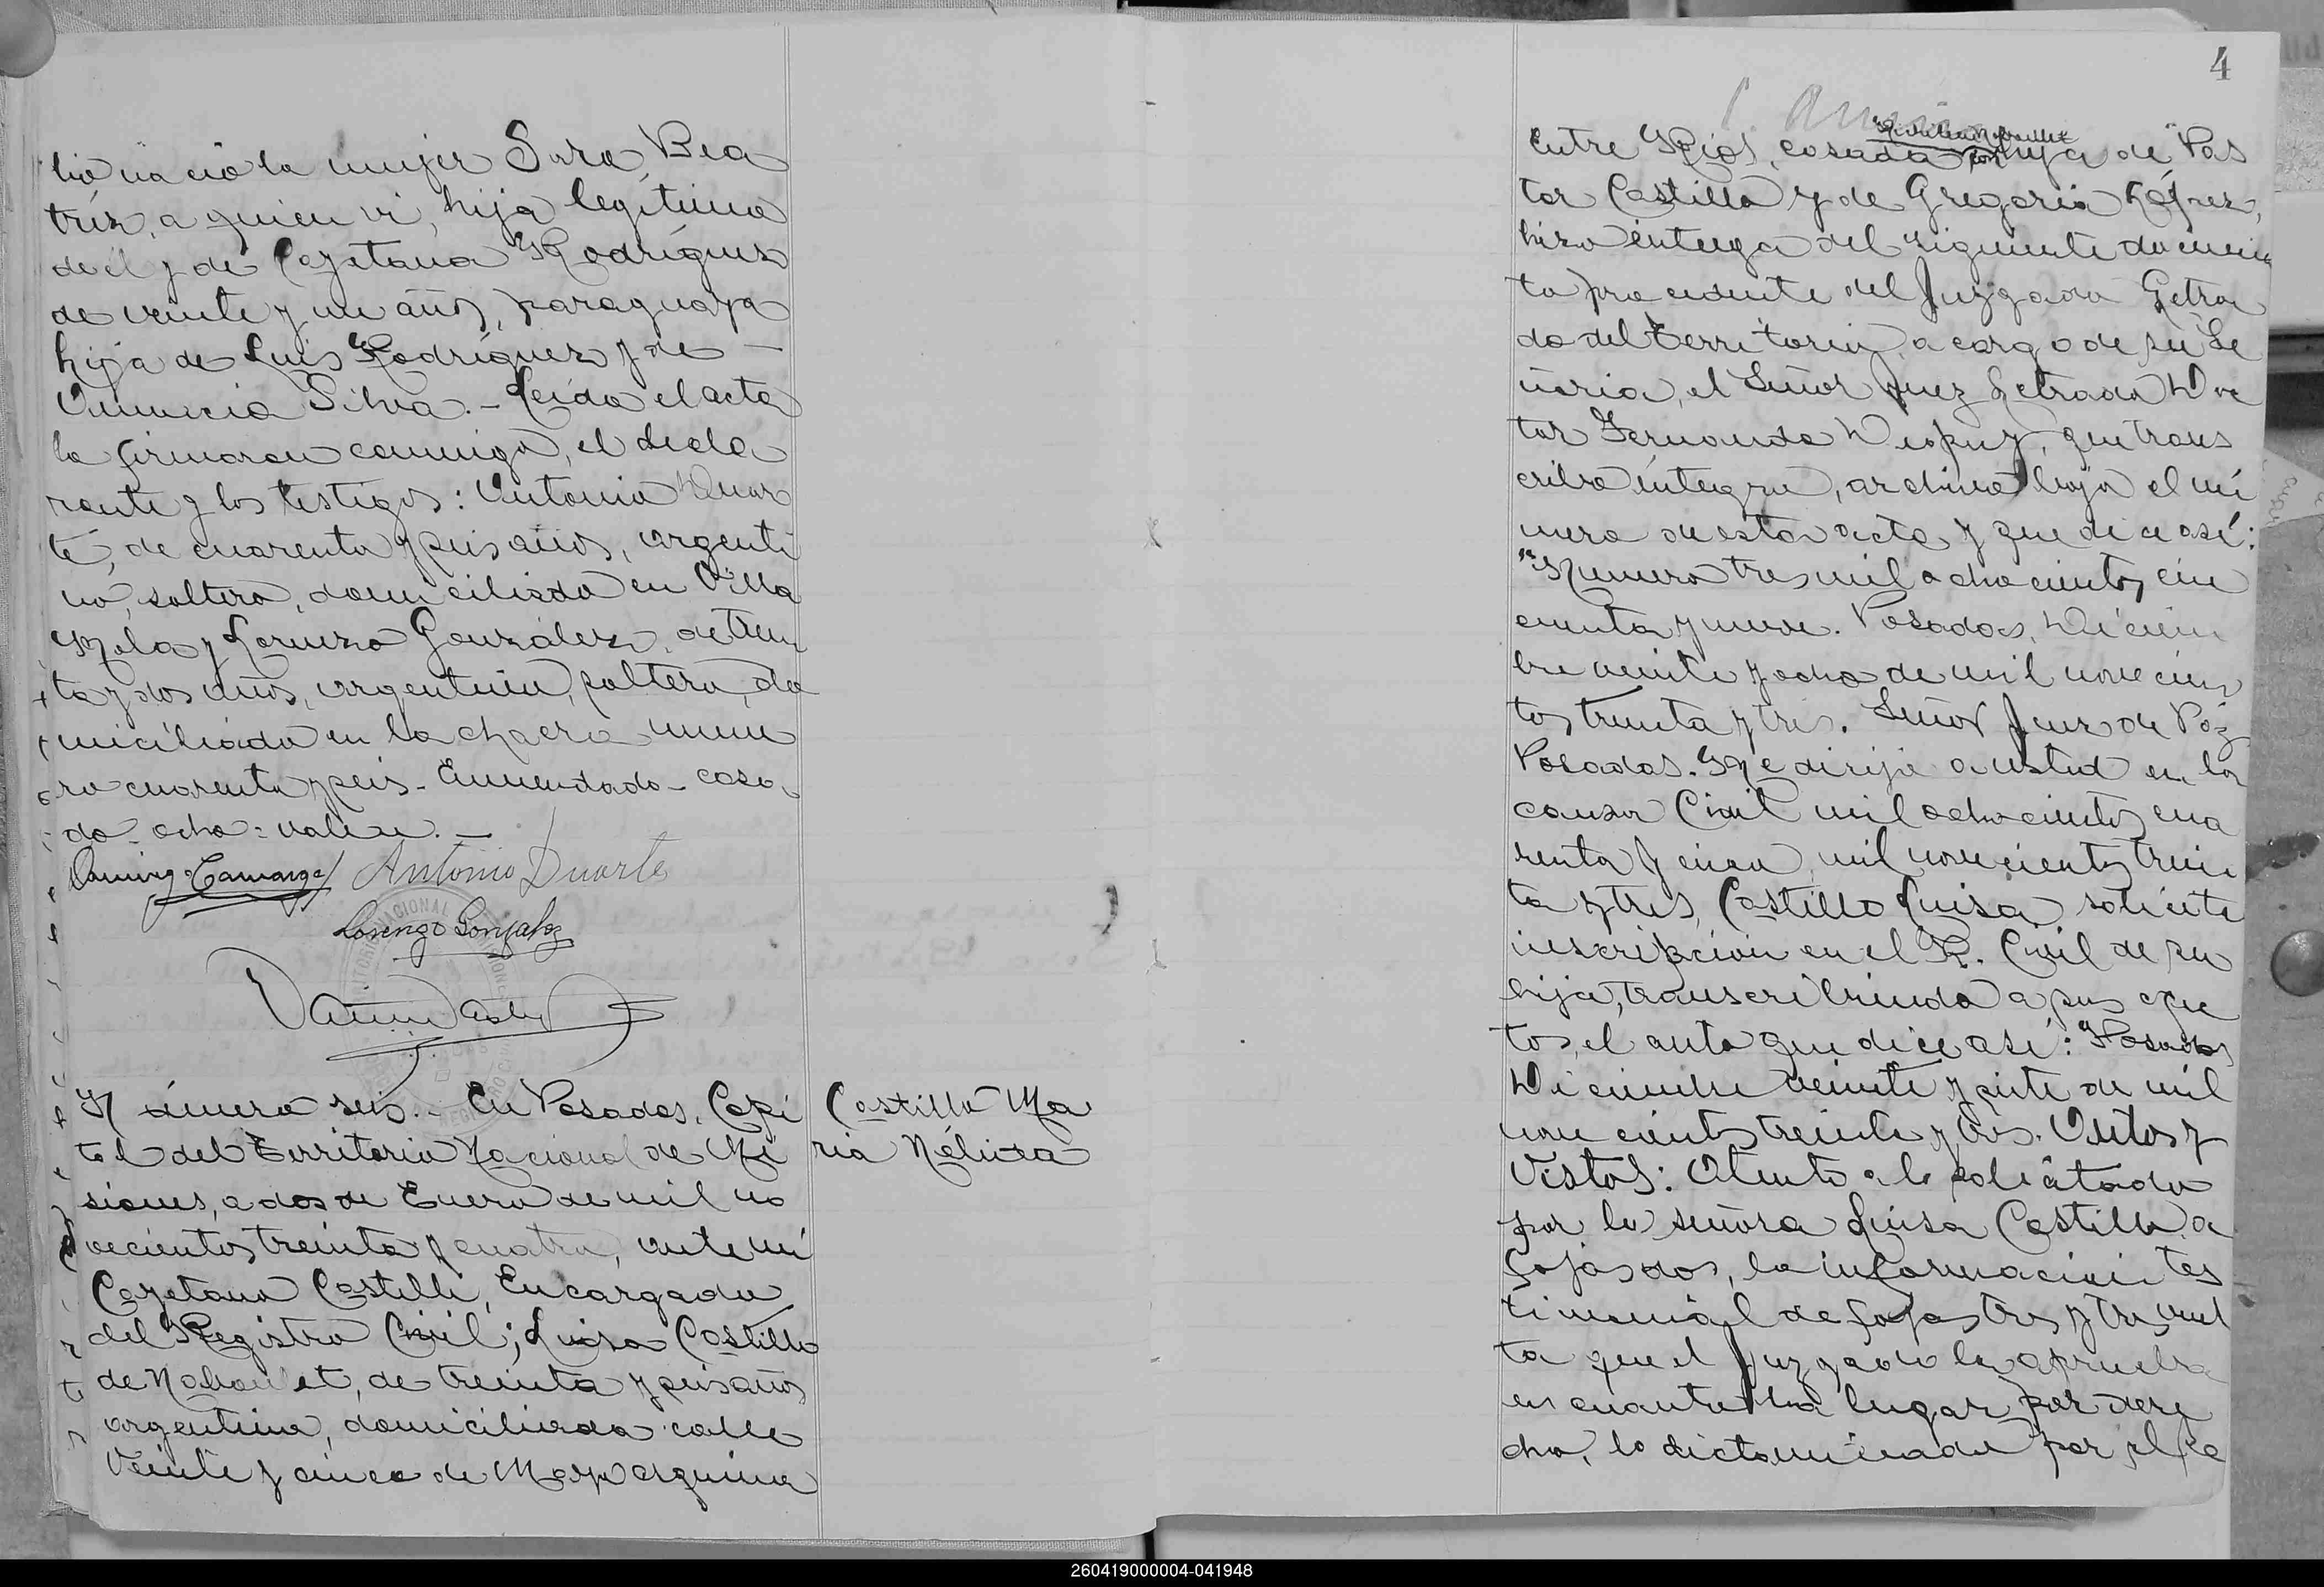 nació la mujer Sara Bea
triz, a quien vi, hija legítima
de él y de Cayetana Rodríguez
de veinte y un años, paraguaya
hija de Luis Rodríguez y de —
Silva. — Leída el acta
la firmaron conmigo, el decla
rante y los testigos: Antonio Duar
te, de cuarenta y seis años, argenti
no, soltero, domiciliado en Villa
y Lorenzo González, de trein
ta y dos años, argentino, soltero, do
miciliado en la chacra núme
ro cuarenta y seis - Enmendado - casa
do - ocho = valen. —
Antonio Duarte
Lorenzo Gonzalez
Número seis. - En Posadas, Capi
tal del Territorio Nacional de Mi
siones, a dos de Enero de mil no
vecientos treinta y cuatro, ante mi
Cayetano Castelli, Encargado
del Registro Civil; Luisa Castillo
de de treinta y seis años
argentina, domiciliada calle
Veinte y cinco de Mayo esquina
Castillo Ma
ria Nélida
4
Entre Rios, casada hija de Pas
tor Castillo y de Gregoria
hizo entrega del siguiente documen
to procedente del Juzgado Letra
do del Territorio a cargo de su Se
ñoria, el Señor Juez Letrado Doc
tor Fernando que trans
cribo íntegro, archivo bajo el nú
mero de esta acta y que dice así:
"Número tres mil ochocientos cin
cuenta y nueve. Posadas, Diciem
bre veinte y ocho de mil novecien
tos treinta y tres. Señor Juez de Paz
Posadas. Me dirijo a usted en la
causa Civil mil ochocientos cua
renta y cinco mil novecientos trein
ta y tres, Castillo Luisa solicita
inscripción en el R. Civil de su
hija, transcribiendo a sus efec
tos, el auto que dice así: Posadas
Diciembre veinte y siete de mil
novecientos treinta y tres. Autos y
Vistos: Atento a lo solicitado
por la señora Luisa Castillo a
fojas dos, la información tes
timonial de fojas tres y tres vuel
ta que el Juzgado la aprueba
en cuanto ha lugar por dere
cho, lo dictaminado por el
260419000004-041948